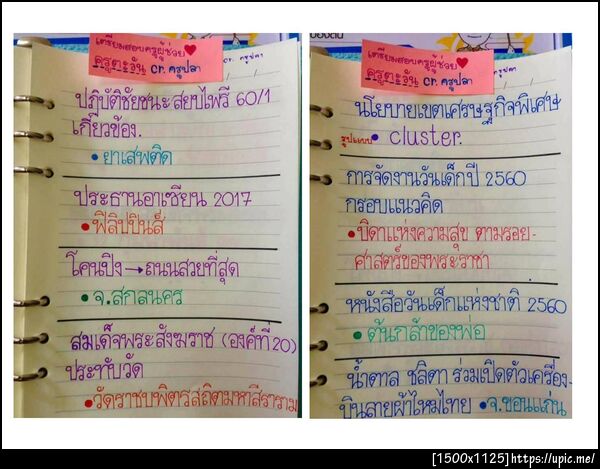 เตรียมสอบครูผู้ช่วย♥
ครูตะวัน cr. ครูปลา
ปฏิบัติชัยชนะสยบไพรี 60/1
เกี่ยวข้อง.
•ยาเสพติด
ประธานอาเซียน 2017
•ฟิลิปปินส์
โค้นปิง→ถนนสวยที่สุด
•จ.สกลนคร
สมเด็จพระสังฆราช (องค์ที่ 20)
ประทับวัด
•วัดราชบพิตรสถิตมหาสีมาราม
เตรียมสอบครูผู้ช่วย♥
ครูตะวัน cr. ครูปลา
นโยบายเขตเศรษฐกิจพิเศษ
รูปแบบ• cluster.
การจัดงานวันเด็กปี 2560
กรอบแนวคิด
•บิดาแห่งความสุข ตามรอย-
ศาสตร์ของพระราชา
หนังสือวันเด็กแห่งชาติ 2560
•ต้นกล้าของพ่อ
น้ำตาล ชลิตา ร่วมเปิดตัวเครื่อง-
บินลายผ้าไหมไทย •จ.ขอนแก่น
[1500x1125]https://upic.me/